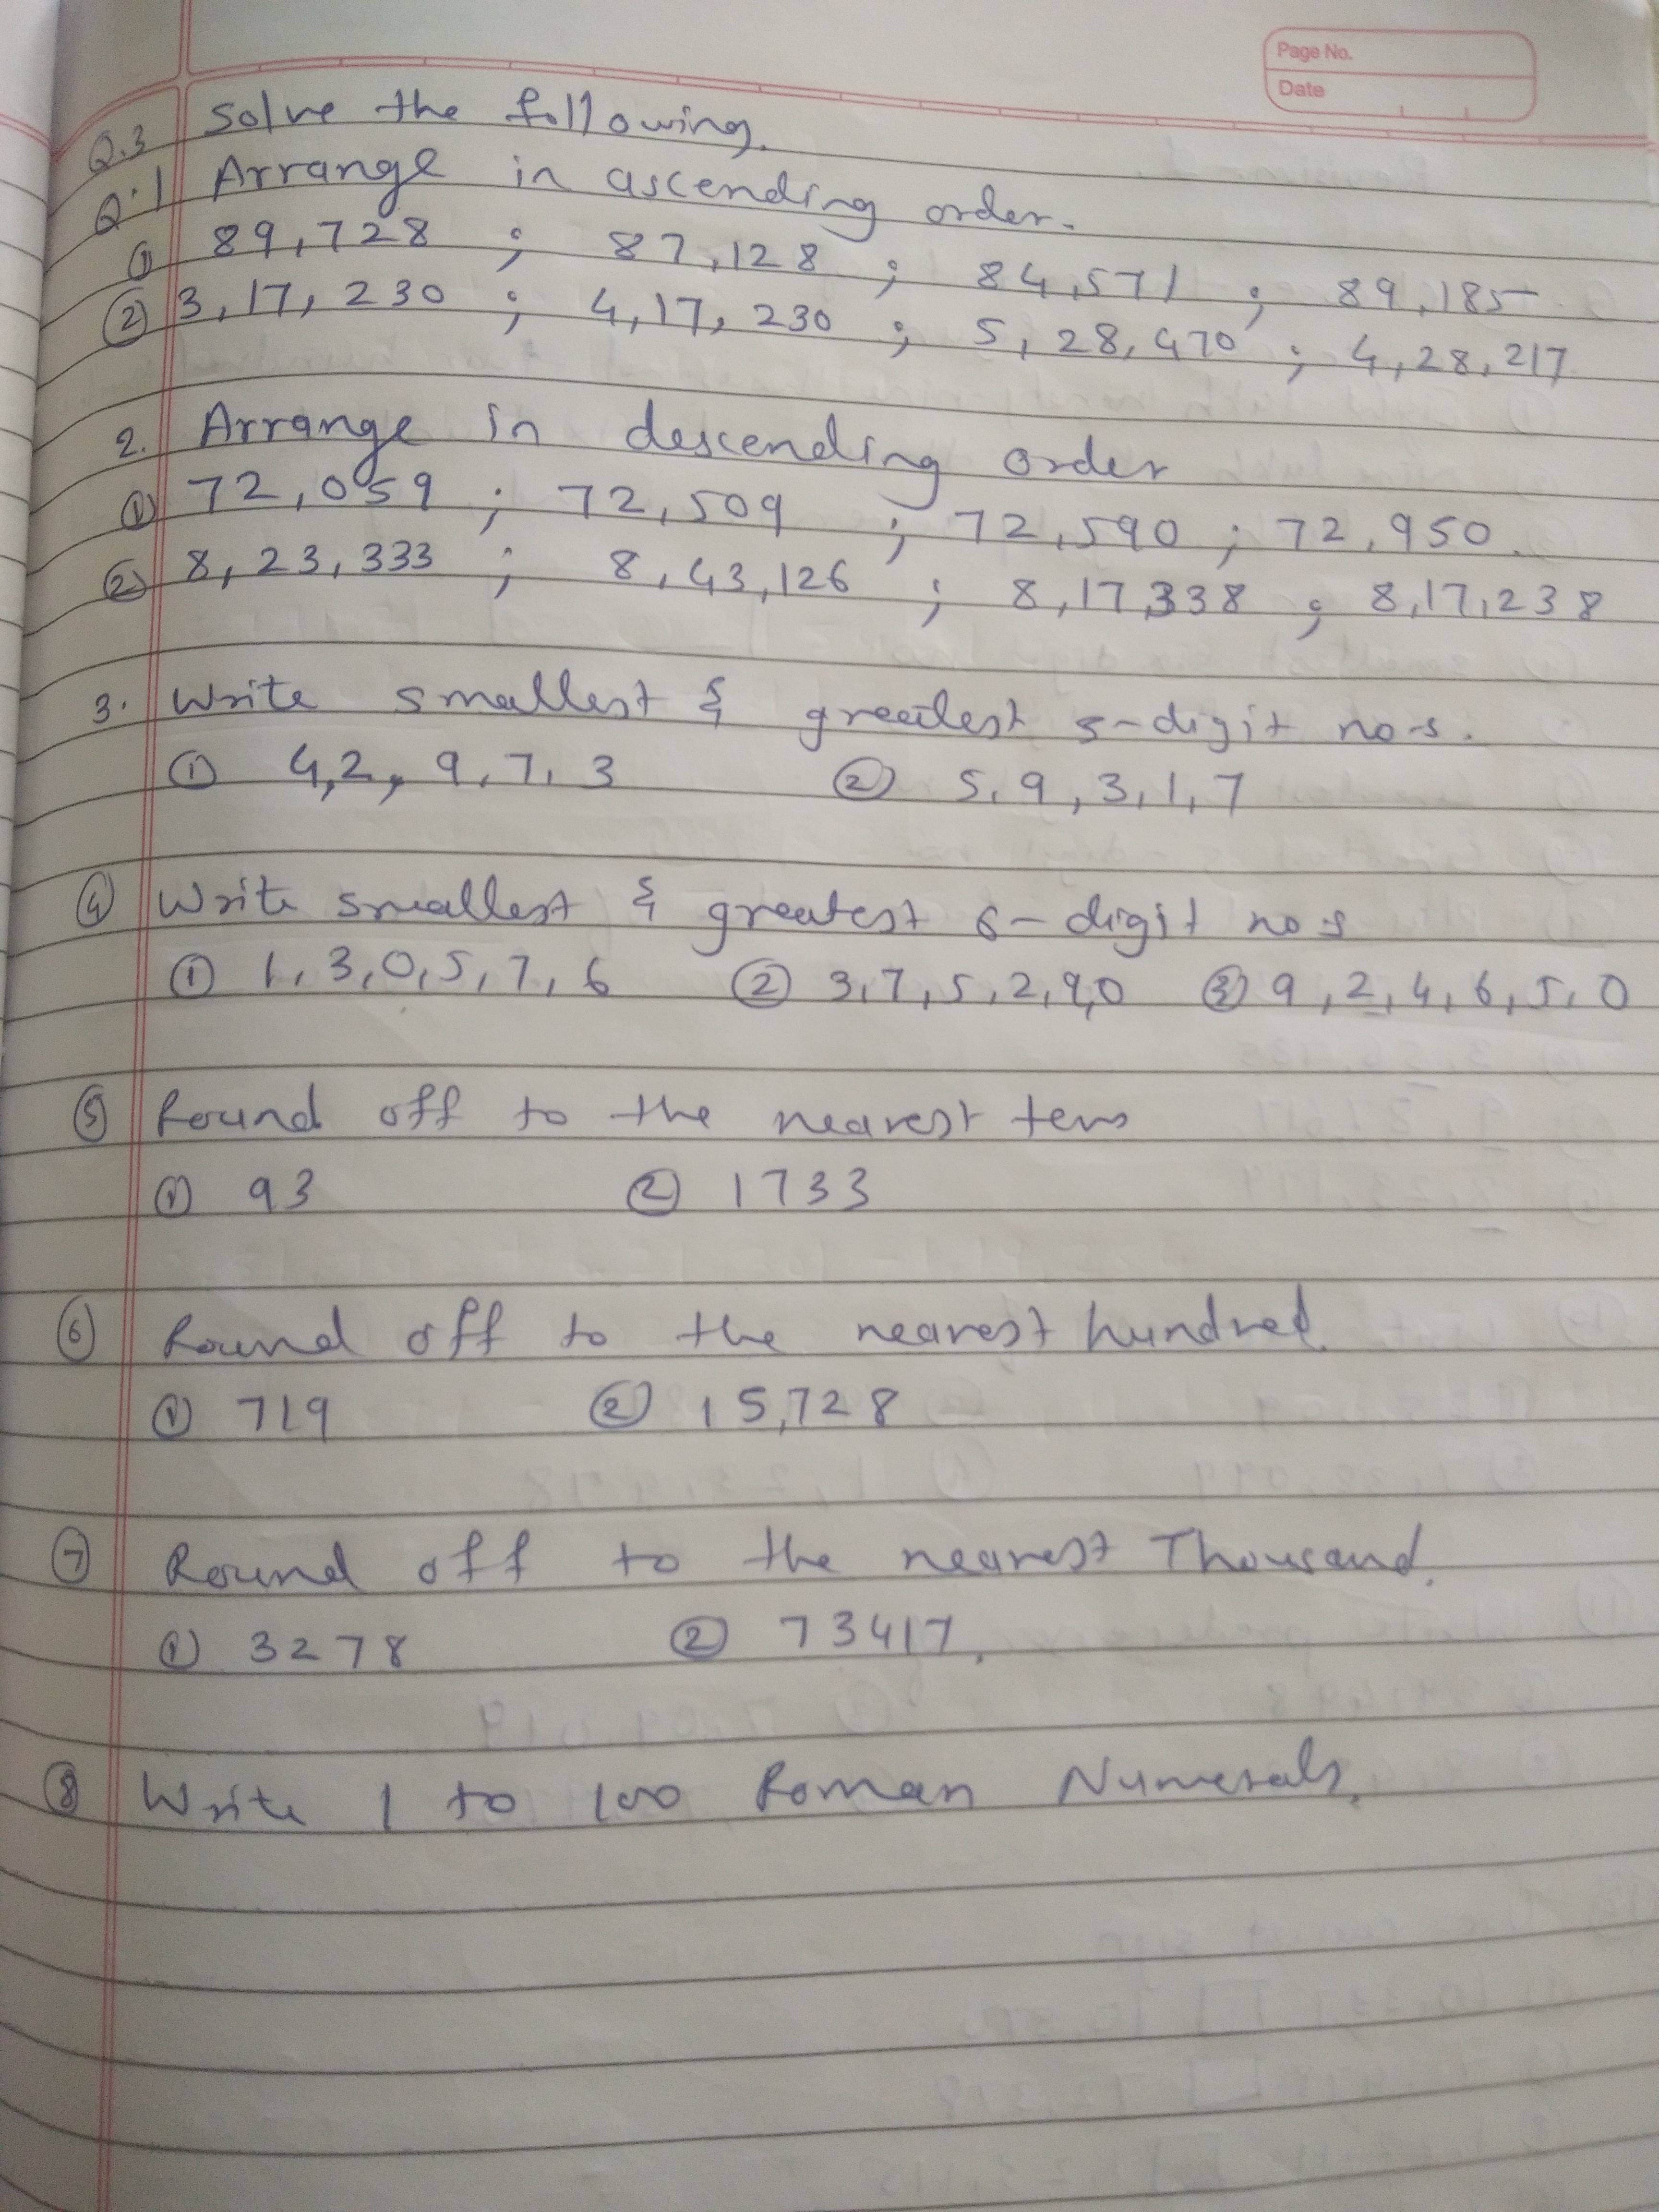 Page No.
Date
Q.3 Solve the following.
Q.1 Arrange in ascending order.
① 89,728 ; 87,128 ; 84,571 ; 89,185
② 3,17,230 ; 4,17,230 ; 5,28,470 ; 4,28,217
2. Arrange in descending order
① 72,059 ; 72,509 ; 72,590 ; 72,950.
② 8,23,333 ; 8,43,126 ; 8,17,338 ; 8,17,238
3. Write smallest & greatest 5-digit no-s.
① 4,2,9,7,3 ② 5,9,3,1,7
④ Write smallest & greatest 6-digit nos
① 1,3,0,5,7,6 ② 3,7,5,2,9,0 ③ 9,2,4,6,5,0
⑤ Round off to the nearest tens
① 93 ② 1733
⑥ Round off to the nearest hundred.
① 719 ② 15,728
⑦ Round off to the nearest Thousand.
① 3278 ② 73417.
⑧ Write 1 to 100 Roman Numerals.